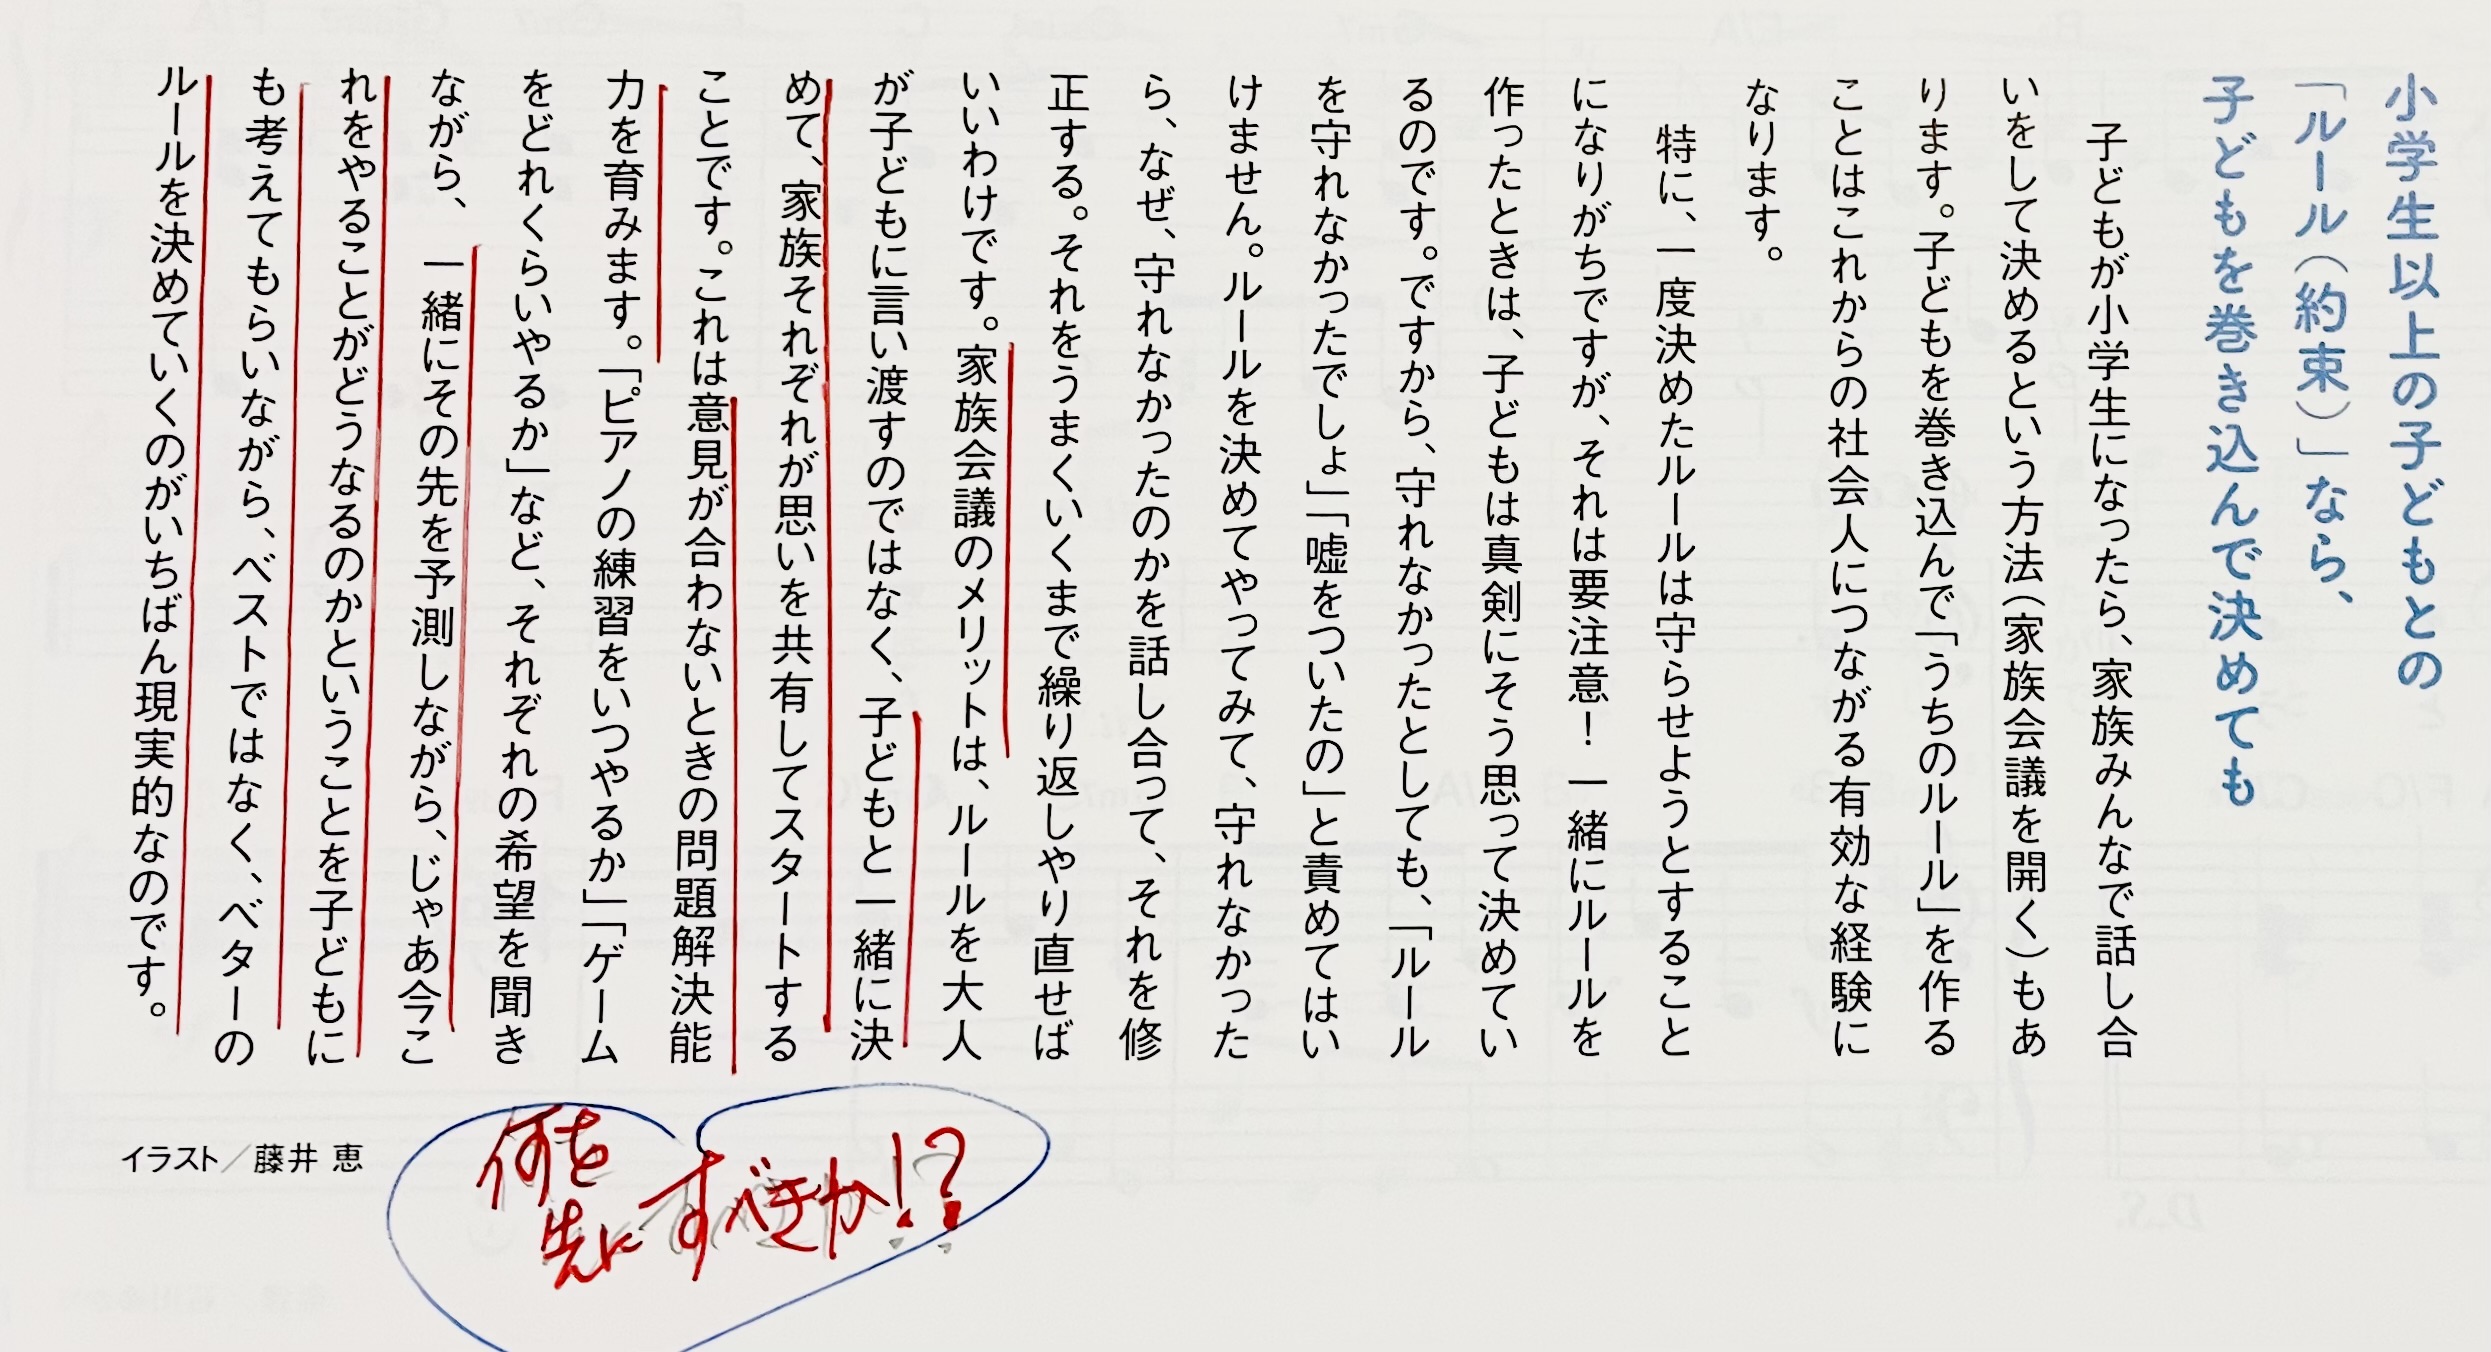 小学生以上の子どもとの
「ルール(約束)」なら、
子どもを巻き込んで決めても
子どもが小学生になったら、家族みんなで話し合
いをして決めるという方法(家族会議を開く)もあ
ります。子どもを巻き込んで「うちのルール」を作る
ことはこれからの社会人につながる有効な経験に
なります。
特に、一度決めたルールは守らせようとすること
になりがちですが、それは要注意！一緒にルールを
作ったときは、子どもは真剣にそう思って決めてい
るのです。ですから、守れなかったとしても、「ルール
を守れなかったでしょ」「嘘をついたの」と責めてはい
けません。ルールを決めてやってみて、守れなかった
ら、なぜ、守れなかったのかを話し合って、それを修
正する。それをうまくいくまで繰り返しやり直せば
いいわけです。家族会議のメリットは、ルールを大人
が子どもに言い渡すのではなく、子どもと一緒に決
めて、家族それぞれが思いを共有してスタートする
ことです。これは意見が合わないときの問題解決能
力を育みます。「ピアノの練習をいつやるか」「ゲーム
をどれくらいやるか」など、それぞれの希望を聞き
ながら、一緒にその先を予測しながら、じゃあ今こ
れをやることがどうなるのかということを子どもに
も考えてもらいながら、ベストではなく、ベターの
ルールを決めていくのがいちばん現実的なのです。
何を
先にすべきか!?
イラスト／藤井 恵